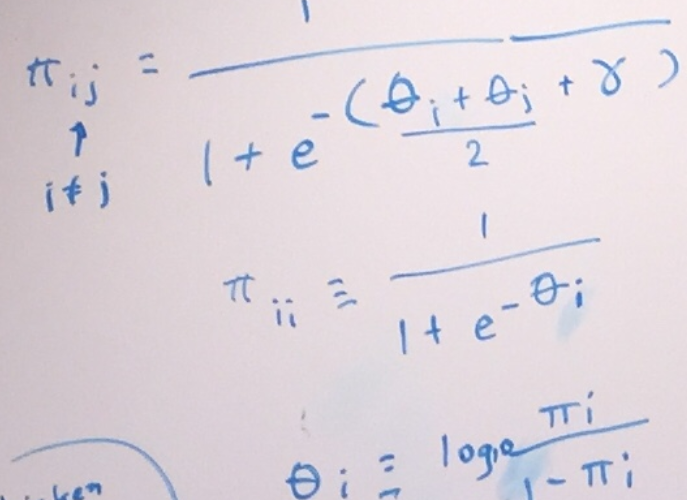 π_ij = 1 / (1 + e^-((θ_i + θ_j)/2 + γ))
↑
i ≠ j
π_ii ≡ 1 / (1 + e^-θ_i)
θ_i = log_e π_i / (1 - π_i)